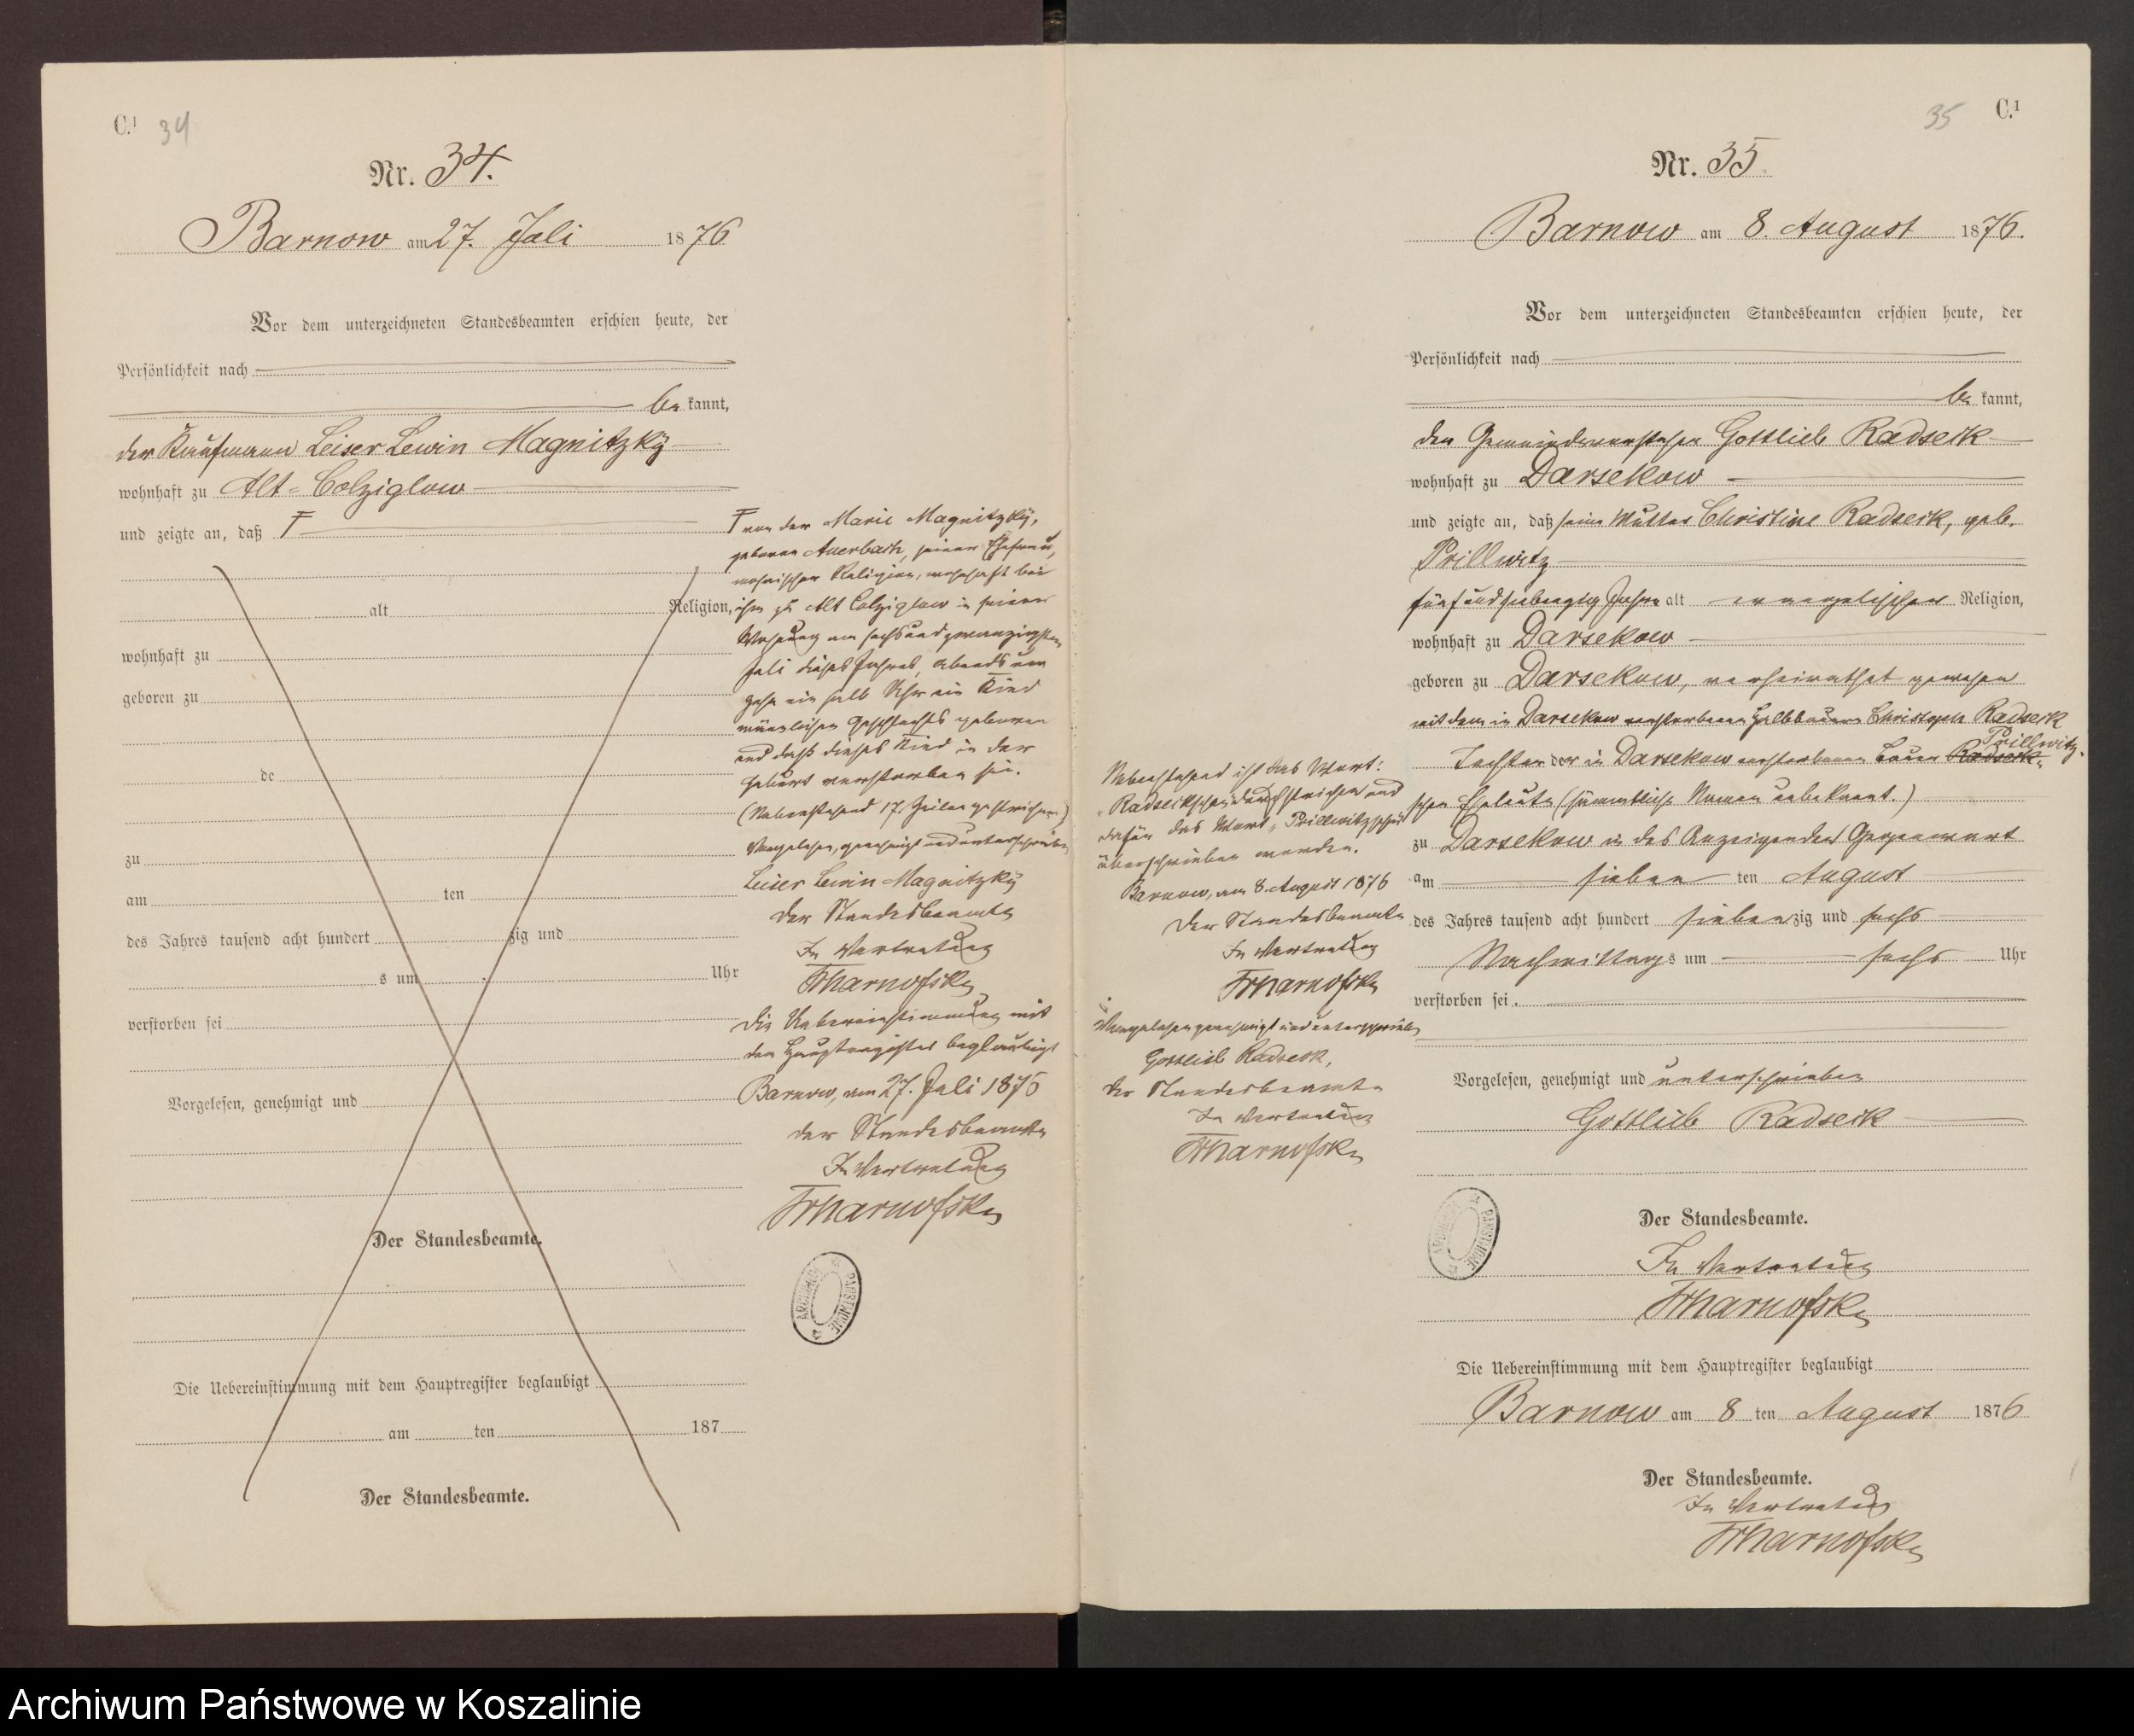 C.¹ 34
Nr. 34.
Barnow am 27. Juli 1876
Vor dem unterzeichneten Standesbeamten erschien heute, der
Persönlichkeit nach
be kannt,
der Kaufmann Leiser Lewin Magnitzky
wohnhaft zu Alt-Colziglow
und zeigte an, daß F
alt Religion,
wohnhaft zu
geboren zu
de
zu
am ten
des Jahres tausend acht hundert zig und
s um Uhr
verstorben sei
Vorgelesen, genehmigt und
Der Standesbeamte.
Die Uebereinstimmung mit dem Hauptregister beglaubigt
am ten 187
Der Standesbeamte.
F von der Marie Magnitzky,
geborenen Auerbach, seiner Ehefrau,
mosaischer Religion, wohnhaft bei
ihm zu Alt Colziglow in seiner
Wohnung am sechsundzwanzigsten
Juli dieses Jahres, Abends um
zehn ein halb Uhr ein Kind
männlichen Geschlechts geboren
und daß dieses Kind in der
Geburt verstorben sei.
(Nebenstehend 17 Zeilen gestrichen)
Vorgelesen, genehmigt und unterschrieben
Leiser Lewin Magnitzky
Der Standesbeamte
In Vertretung
Die Uebereinstimmung mit
dem Hauptregister beglaubigt
Barnow, am 27. Juli 1876
Der Standesbeamte
In Vertretung
ARCHIWUM PAŃSTWOWE
35 C.¹
Nr. 35.
Barnow am 8. August 1876.
Vor dem unterzeichneten Standesbeamten erschien heute, der
Persönlichkeit nach
be kannt,
der Gemeindevorsteher Gottlieb Radseck
wohnhaft zu Darsekow
und zeigte an, daß seine Mutter Christine Radseck, geb.
Prillwitz
fünfundsiebenzig Jahre alt evangelischer Religion,
wohnhaft zu Darsekow
geboren zu Darsekow, verheirathet gewesen
mit dem in Darsekow verstorbenen Halbbauern Christoph Radseck
Prillwitz-
Tochter der in Darsekow verstorbenen Bauer Radseck-
schen Eheleute (sämmtliche Namen unbekannt.)
zu Darsekow in des Anzeigenden Gegenwart
am sieben ten August
des Jahres tausend acht hundert siebenzig und sechs
Nachmittags um sechs Uhr
verstorben sei.
Vorgelesen, genehmigt und unterschrieben
Gottlieb Radseck
Der Standesbeamte.
In Vertretung
Die Uebereinstimmung mit dem Hauptregister beglaubigt
Barnow am 8 ten August 1876
Der Standesbeamte.
In Vertretung
Nebenstehend ist das Wort:
"Radseckschen" durchstrichen und
dafür das Wort "Prillwitzschen"
überschrieben worden.
Barnow, am 8. August 1876
Der Standesbeamte
In Vertretung
Vorgelesen genehmigt und unterschrieben
Gottlieb Radseck,
Der Standesbeamte
In Vertretung
ARCHIWUM PAŃSTWOWE
Archiwum Państwowe w Koszalinie